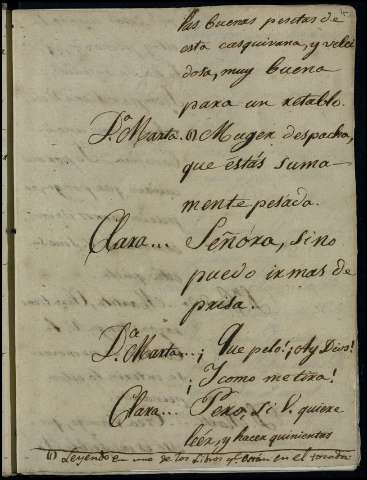 las buenas pesetas de
esta casquivana, y velei
dosa, muy buena
para un retablo.
D.ª Marta. (1) Muger despacha,
que estás suma-
mente pesada.
Clara... Señora, si no
puedo ir mas de
prisa.
D.ª Marta...¡ Que pelo! ¡Ay Dios!
¡Y como me tira!
Clara... Pero, si V. quiere
leér, y hacer quinientas
(1) Leyendo en uno de los Libros q.e están en el tocador